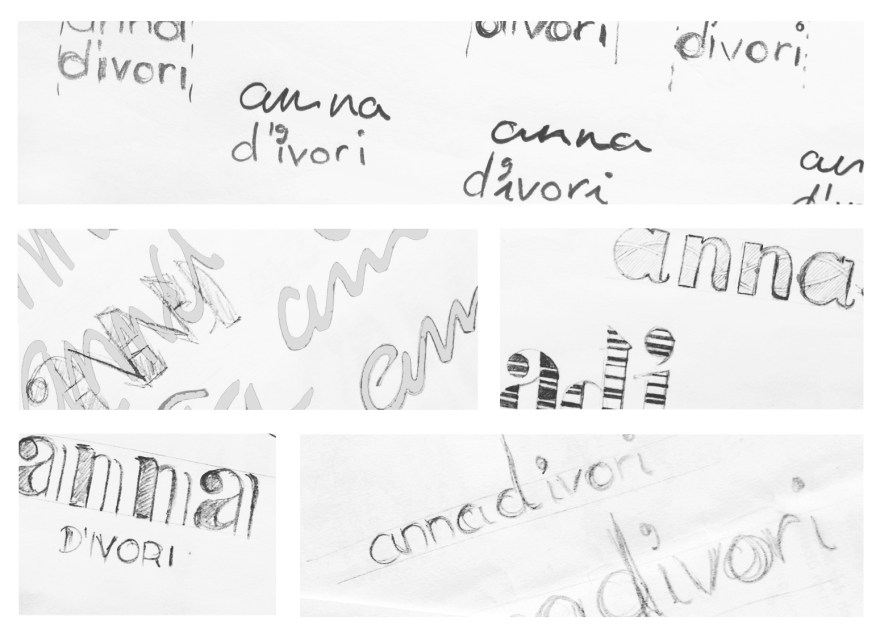 anna
divori
divori
divori
anna
d'ivori
anna
d'ivori
an
d'i
anna
ann
ann
anna
adi
anna
D'IVORI
annad'ivori
nad'ivori